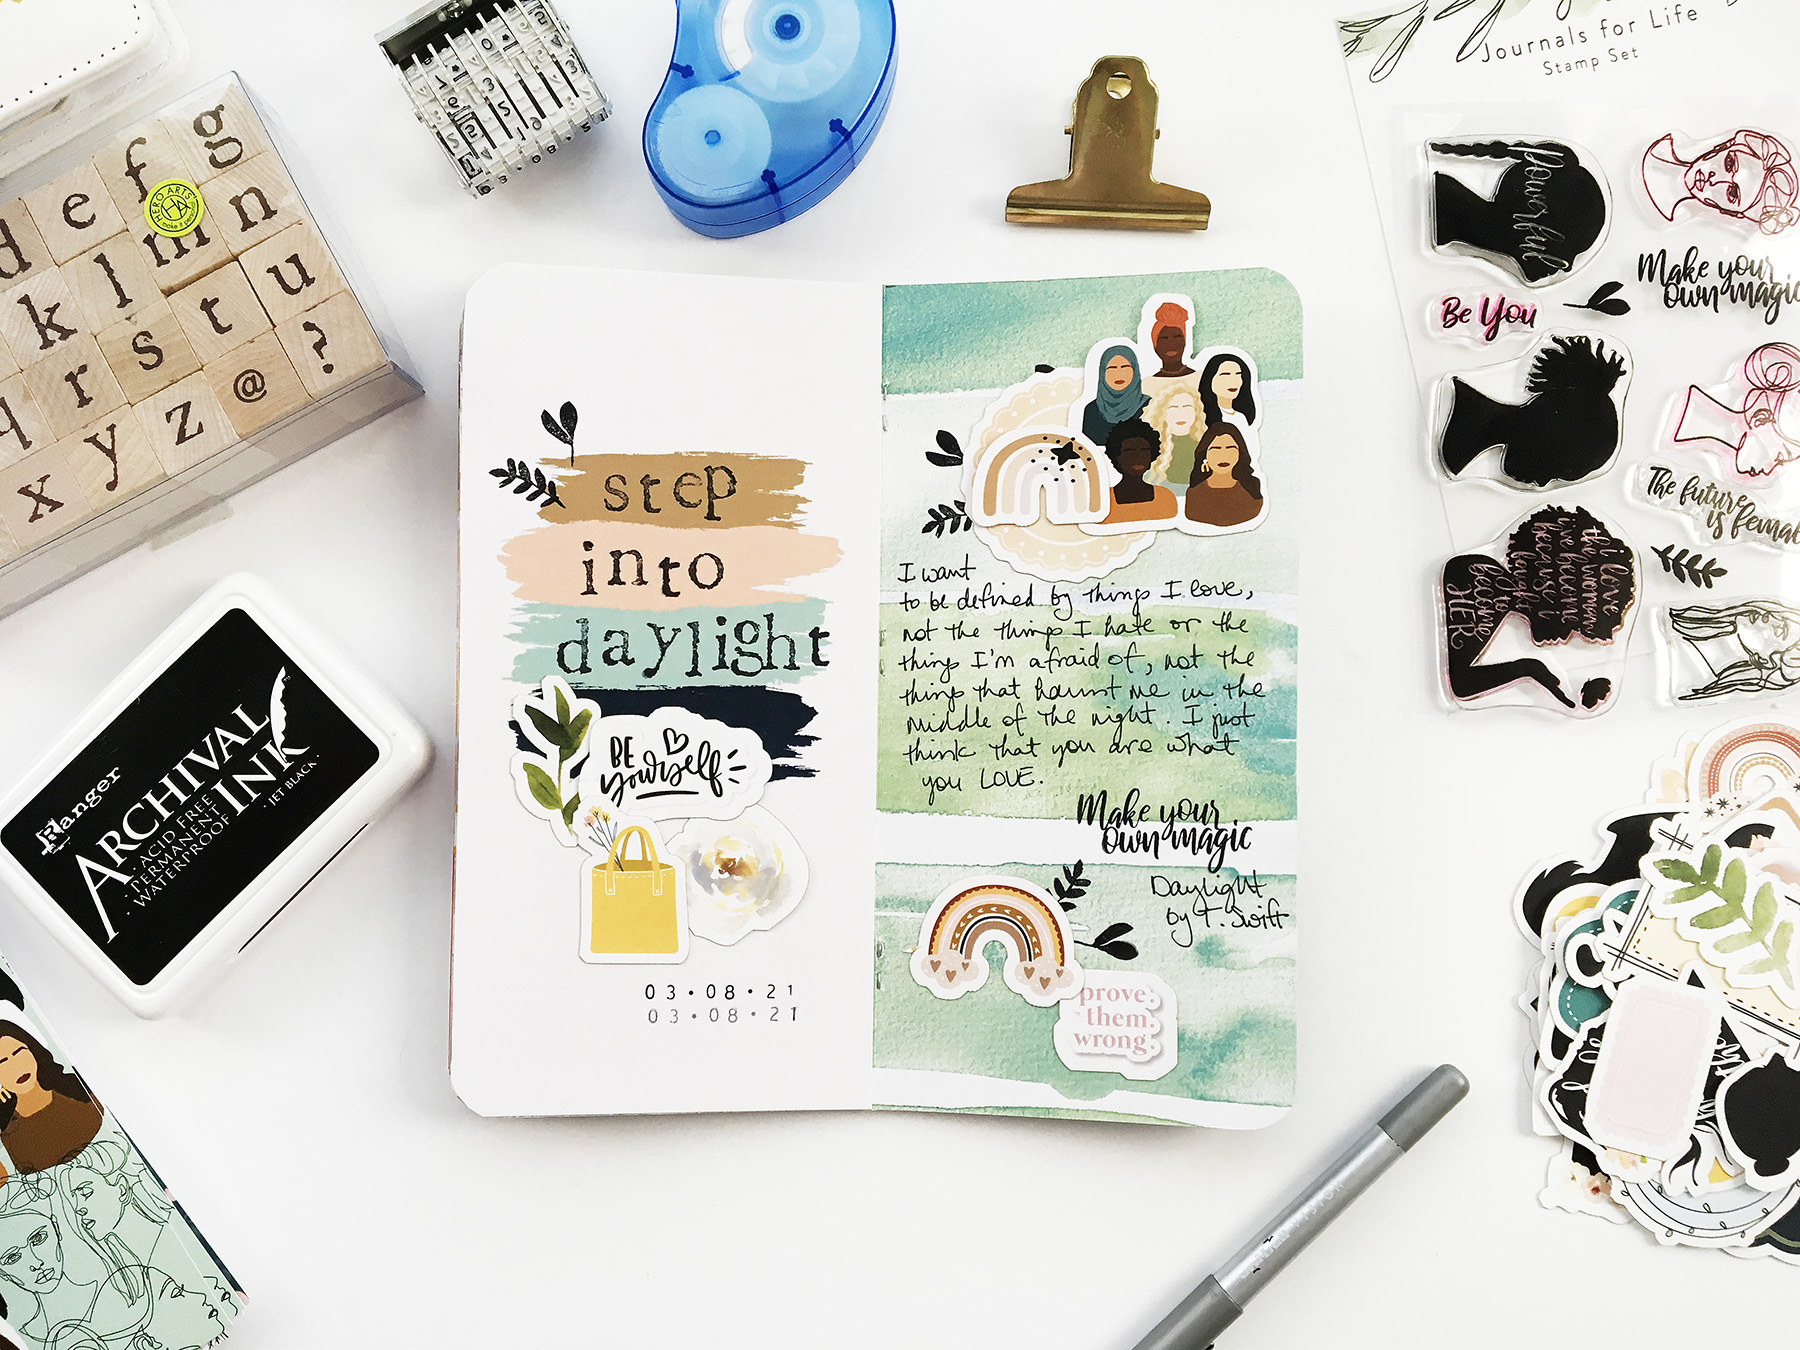 Journals for Life
Stamp Set
d e f g
k l m n
q r s t u
x y z @ ?
HERO ARTS
HA
make it personal
powerful
Make your
own magic
Be You
The future
is female
i love
the woman
i've become
because i
fought
to
become
HER
Ranger
ARCHIVAL
INK
· ACID FREE
· PERMANENT
· WATERPROOF
· JET BLACK ·
step
into
daylight
BE
yourself
03·08·21
03·08·21
I want
to be defined by things I love,
not the things I hate or the
things I'm afraid of, not the
things that haunt me in the
middle of the night. I just
think that you are what
you LOVE.
Make your
own magic
Daylight
by T. Swift
prove
them
wrong.